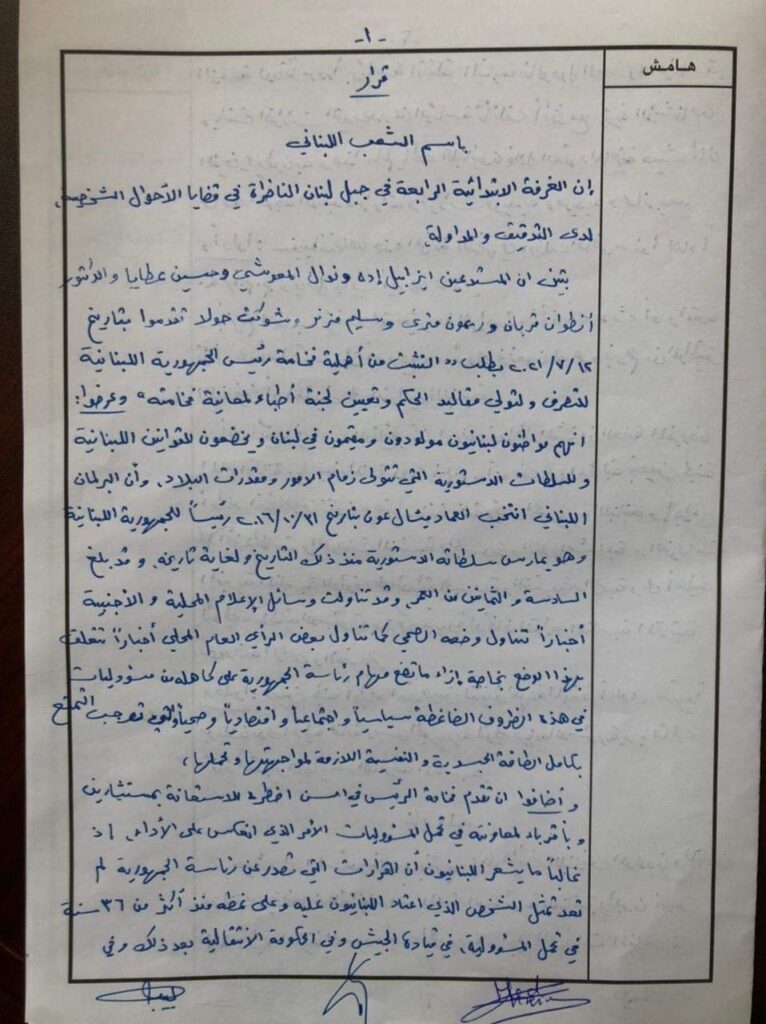 - ١ -
هامش
قرار
باسم الشعب اللبناني
إن الغرفة الابتدائية الرابعة في جبل لبنان الناظرة في قضايا الأحوال الشخصية،
لدى التدقيق والمداولة،
تبين ان المستدعين ايزابيل إده ونوال المعوشي وحسين عطايا والدكتور
أنطوان قربان وريمون متري وسليم مزنر وشوكت حولا تقدموا بتاريخ
٢٠٢١/٧/١٢ بطلب "التثبت من أهلية فخامة رئيس الجمهورية اللبنانية
للتصرف ولتولي مقاليد الحكم وتعيين لجنة أطباء لمعاينة فخامته" وعرضوا:
انهم مواطنون لبنانيون مولودون ومقيمون في لبنان ويخضعون للقوانين اللبنانية
وللسلطات الدستورية التي تتولى زمام الامور ومقدرات البلاد، وأن البرلمان
اللبناني انتخب العماد ميشال عون بتاريخ ٢٠١٦/١٠/٣١ رئيساً للجمهورية اللبنانية
وهو يمارس سلطاته الدستورية منذ ذلك التاريخ ولغاية تاريخه، وقد بلغ
السادسة والثمانين من العمر، وقد تناولت وسائل الإعلام المحلية والأجنبية
أخباراً تتناول وضعه الصحي كما تناول بعض الرأي العام المحلي أخباراً تتعلق
بهذا الوضع بخاصة إزاء ما تضع مهام رئاسة الجمهورية على كاهله من مسؤوليات
في هذه الظروف الضاغطة سياسياً واجتماعياً واقتصادياً وصحياً والتي توجب التمتع
بكامل الطاقة الجسدية والنفسية اللازمة لمواجهتها وتحملها،
وأضافوا ان تقدم فخامة الرئيس في السن اضطره للاستعانة بمستشارين
وبأقرباء لمعاونته في تحمل المسؤوليات الأمر الذي انعكس على الأداء، إذ
غالباً ما يشعر اللبنانيون أن القرارات التي تصدر عن رئاسة الجمهورية لم
تعد تمثل الشخص الذي اعتاد اللبنانيون عليه وعلى نمطه منذ أكثر من ٣٦ سنة
في تحمل المسؤولية، في قيادة الجيش وفي الحكومة الانتقالية بعد ذلك وفي